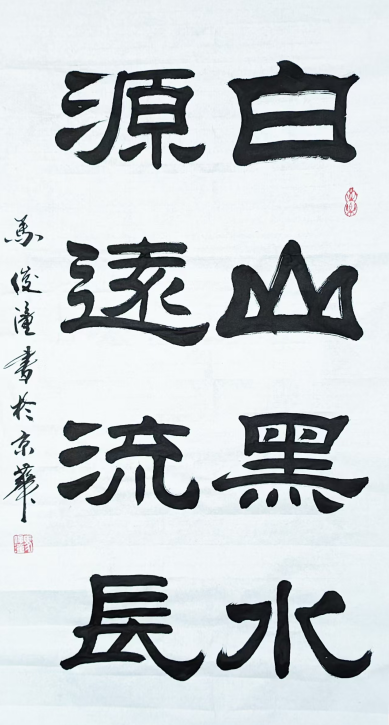 白山黑水
源遠流長
馬俊潼書於京華